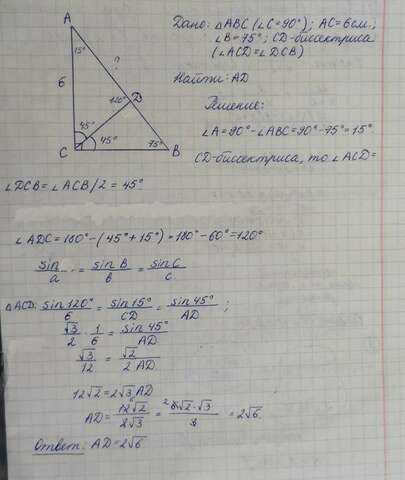 A
15°
?
6
120°
D
45°
45°
75°
C
B
Дано: △ABC (∠C=90°); AC=6см;
∠B=75°; CD-биссектриса
(∠ACD=∠DCB)
Найти: AD
Решение:
∠A=90°-∠ABC=90°-75°=15°.
CD-биссектриса, то ∠ACD=
∠DCB=∠ACB/2=45°
∠ADC=180°-(45°+15°)=180°-60°=120°
sin/a = sin B/b = sin C/c
△ACD: sin120°/6 = sin15°/CD = sin45°/AD ;
√3/2 · 1/6 = sin45°/AD
√3/12 = √2/2AD
12√2=2√3AD
AD= 12√2/2√3 = 6√2·√3/3 = 2√6.
Ответ: AD=2√6